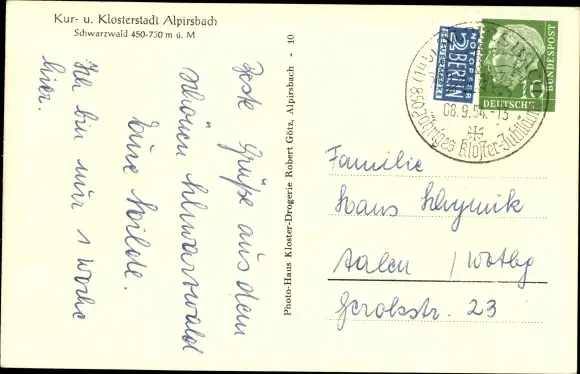 Kur- u. Klosterstadt Alpirsbach
Schwarzwald 450-750 m ü. M
Beste Grüße aus dem
schönen Schwarzwald
Eure Hilde.
Ich bin nur 1 Woche
hier.
Photo-Haus Kloster-Drogerie Robert Götz, Alpirsbach - 10
NOTOPFER
2 BERLIN
STEUERMARKE
10
DEUTSCHE
BUNDESPOST
850jähriges Kloster-Jubiläum
08.9.54.-15
Familie
Hans
Aalen / Wttbg
Gerokstr. 23